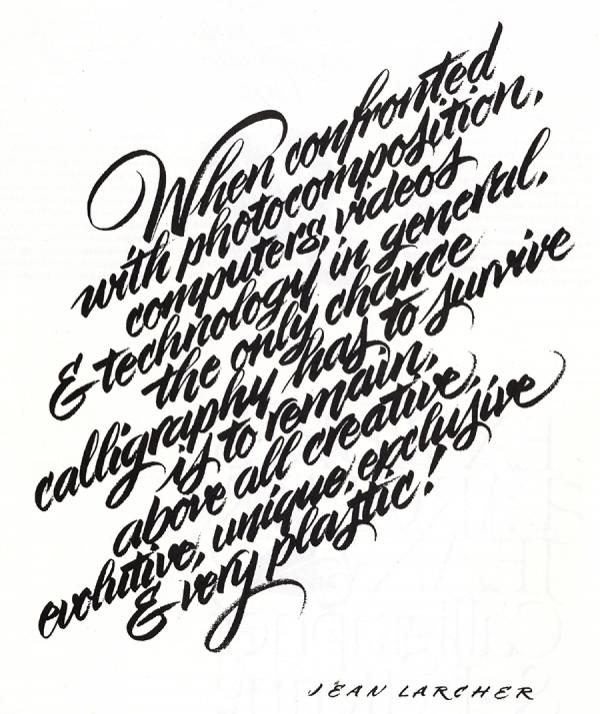 When confronted
with photocomposition,
computers, videos
& technology in general,
the only chance
calligraphy has to survive
is to remain,
above all creative,
evolutive, unique, exclusive
& very plastic!
JEAN LARCHER